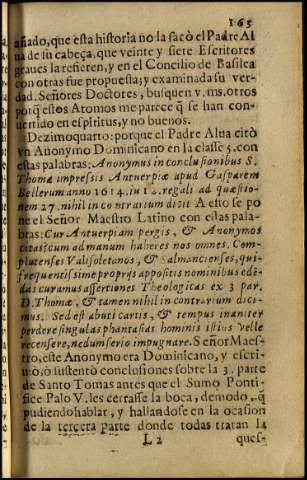 163
añado, que esta historia no la sacò el Padre Al
ua de su cabeça, que veinte y siete Escritores
graues la refieren, y en el Concilio de Basilea
con otras fue propuesta; y examinada su ver-
dad. Señores Doctores, busquen v. ms. otros
porq̃ estos Atomos me parece q̃ se han con-
uertido en espiritus, y no buenos.
Dezimoquarto: porque el Padre Alua citò
vn Anonymo Dominicano en la classe 5. con
estas palabras: Anonymus in conclusionibus S.
Thomæ impressis Antuerpiæ apud Gasparem
Bellerum anno 1614. iu 12. regali ad quæstio-
nem 27. nihil in contrarium dicit A esto se po
ne el Señor Maestro Latino con estas pala-
bras: Cur Antuerpiam pergis, & Anonymos
citas; cum ad manum haberes nos omnes. Com-
plutenses Valisoletanos, & Salmancienses, qui
frequentissime proprijs appositis nominibus edē-
das curamus assertiones Theologicas ex 3 par.
D. Thomæ, & tamen nihil in contrarium dici-
mus. Sed est abuti cartis, & tempus inaniter
perdere singulas phantasias hominis istius velle
recensere, nedum serio impugnare. Señor Maes-
tro, este Anonymo era Dominicano, y escri-
uiò, ò sustentò conclusiones sobre la 3. parte
de Santo Tomas antes que el Sumo Ponti-
fice Palo V. les cerrasse la boca, de modo, q̃
pudiendo hablar, y hallandose en la ocasion
de la tercera parte donde todas tratan la
L 2 ques-